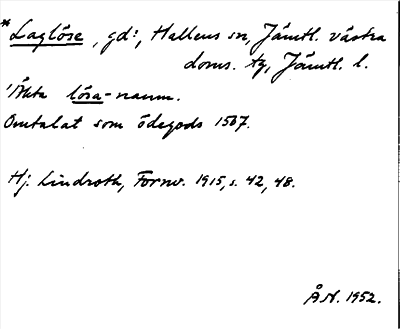 * Laglöse, gd:, Hallens sn, Jämtl. västra
doms. tg, Jämtl. l.
'Äkta lösa-namn.
Omtalat som ödegods 1567.
Hj. Lindroth, Fornv. 1915, s. 42, 48.
Å.N. 1952.